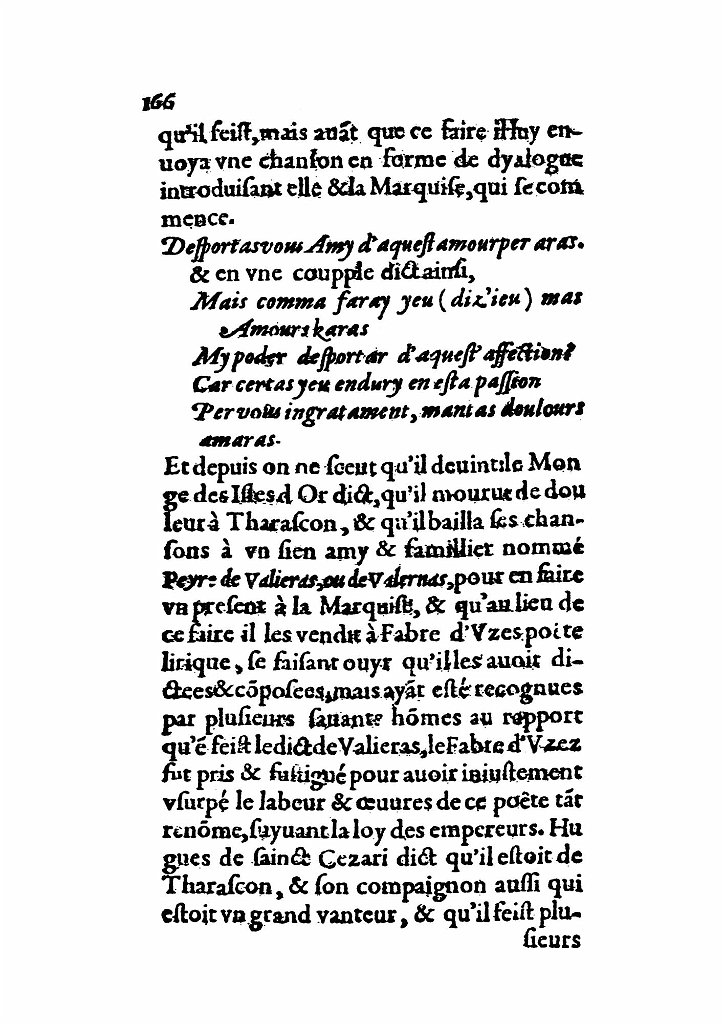 166
qu'il feist, mais auāt que ce faire il luy en-
uoya vne chanson en forme de dyalogue
introduisant elle & la Marquise, qui se com
mence.
Desportas vous Amy d'aquest amour per aras.
& en vne coupple dict ainsi,
Mais comma faray yeu (diz'ieu) mas
Amours karas
My poder desportar d'aquest' affection?
Car certas yeu endury en esta passion
Per vous ingratament, mantas doulours
amaras.
Et depuis on ne sceut qu'il deuint: le Mon
ge des Isles d Or dict, qu'il mourut de dou
leur à Tharascon, & qu'il bailla ses chan-
sons à vn sien amy & famillier nommé
Peyre de Valieras, ou de Valernas, pour en faire
vn present à la Marquise, & qu'au lieu de
ce faire il les vendit à Fabre d'Vzes poëte
lirique, se faisant ouyr qu'il les auoit di-
ctees & cōposees, mais ayāt esté recognues
par plusieurs sauants hōmes au rapport
qu'ē feist ledict de Valieras, le Fabre d'Vzez
fut pris & fustigué pour auoir iniustement
vsurpé le labeur & œuures de ce poëte tāt
renōme, suyuant la loy des empereurs. Hu
gues de sainct Cezari dict qu'il estoit de
Tharascon, & son compaignon aussi qui
estoit vn grand vanteur, & qu'il feist plu-
sieurs